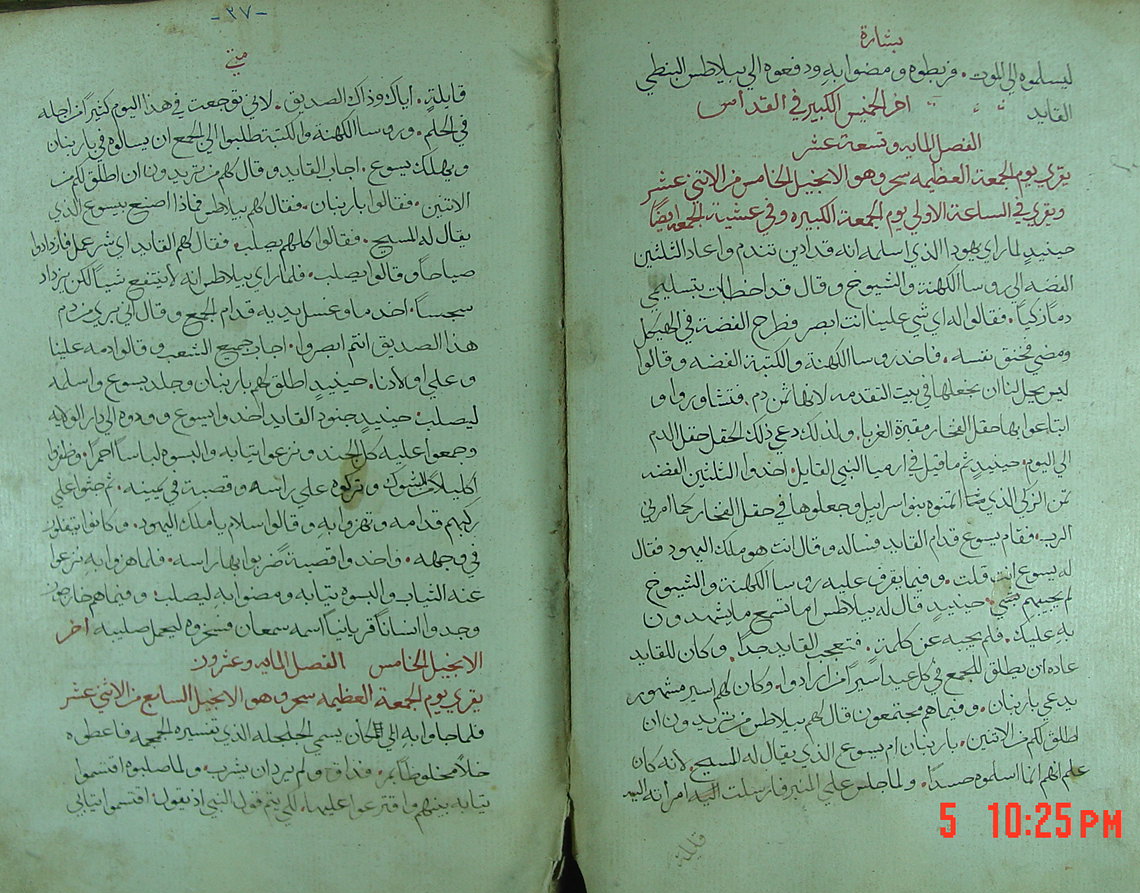 بشارة
ليسلموه الي الموت. فربطوه ومضوا به ودفعوه الي بيلاطس البنطي
القايد اخر الخميس الكبير في القداس
الفصل المايه وتسعة عشر
يقري يوم الجمعة العظيمه سحر وهو الانجيل الخامس من الاتني عشر
ويقري في الساعة الاولي يوم الجمعة الكبيره وفي عشية الجمعه ايضًا
حينيد لما راي يهودا الذي اسلمه انه قد ادين تندم واعاد الثلثين
الفضه الي روسا الكهنة والشيوخ وقال قد اخطات بتسليمي
دمًا زكيًا. فقالوا له اي شي علينا انت ابصر فطرح الفضة في الهيكل
ومضي فخنق نفسه. فاخد روسا الكهنة والكتبة الفضه وقالوا
ليس يحل لنا ان نجعلها في بيت التقدمه لانها ثمن دم. فتشاوروا و
ابتاعوا بها حقل الفخار مقبرة الغربا. ولذلك دعي ذلك الحقل حقل الدم
الي اليوم. حينيدٍ تم ما قيل في ارميا النبي القايل. اخدوا الثلثين الفضه
ثمن الزكي الذي اثمنوه بنو اسرايل وجعلوها في حقل الفخار كما امرني
الرب. فقام يسوع قدام القايد فساله وقال انت هو ملك اليهود فقال
له يسوع انت قلت. وفيما يقرف عليه روسا الكهنة والشيوخ
لم يجبهم بشي. حينيدٍ قال له بيلاطس اما تسمع ما يشهدون
به عليك. فلم يجبه عن كلمة. فتعجب القايد جدًا. وكان للقايد
عاده ان يطلق للجمع في كل عيد اسيرًا من ارادوا. وكان لهم اسير مشهور
يدعي باربنان. وفيما هم مجتمعون قال لهم بيلاطس من تريدون ان
اطلق لكم من الاتنين. باربنان ام يسوع الذي يقال له المسيح. لانه كان
علم انهم انما اسلموه حسدًا. ولما جلس علي المنبر فارسلت اليه امراته اليه
قايلة
-٣٧-
متي
قايلة. اياك وذاك الصديق. لاني توجعت في هذا اليوم كثيرًا من اجله
في الحلم. وروسا الكهنه والكتبة طلبوا الي الجمع ان يسالوه في باربنان
ويهلك يسوع. اجاب القايد وقال لهم من تريدون ان اطلق لكم من
الاتنين. فقالوا باربنان. فقال لهم بيلاطس فماذا اصنع بيسوع الذي
يقال له المسيح. فقالوا كلهم يصلب. فقال لهم القايد اي شر عمل فازدادوا
صياحًا وقالوا يصلب. فلما راي بيلاطس انه لا ينتفع شيًا لكن يزداد
سجسًا. اخد ما وغسل يديه قدام الجمع وقال اني بري من دم
هذا الصديق انتم ابصروا. اجاب جميع الشعب وقالوا دمه علينا
وعلي اولادنا. حينيدٍ اطلق لهم باربنان وجلد يسوع واسلمه
ليصلب. حينيدٍ جنود القايد اخدوا يسوع وودوه الي دار الولايه
وجمعوا عليه كل الجند ونزعوا تيابه والبسوه لباسًا احمرًا. وظفروا
اكليلًا من الشوك وتركوه علي راسه وقصبة في يمينه. تم جتوا علي
ركبهم قدامه وتهزوا به وقالوا سلام يا ملك اليهود. وكانوا يتفلون
في وجهه. واخدوا قصبةً ضربوا بها راسه. فلما هزوا به نزعوا
عنه الثياب والبسوه تيابه ومضوا به ليصلب. وفيما هم خارجون
وجدوا انسانًا قريانيًا اسمه سمعان فسخروه ليحمل صليبه اخر
الانجيل الخامس الفصل المايه وعشرون
يقري يوم الجمعة العظيمه سحر وهو الانجيل السابع من الاثني عشر
فلما جاوا به الي المكان يسمي الجلجله الذي تفسيره الجمجمه فاعطوه
خلًا مخلوطًا بمر. فداق ولم يرد ان يشرب. ولما صلبوه اقتسموا
تيابه بينهم واقترعوا عليها. لكي يتم قول النبي اذ يقول. اقتسموا تيابي
5 10:25PM